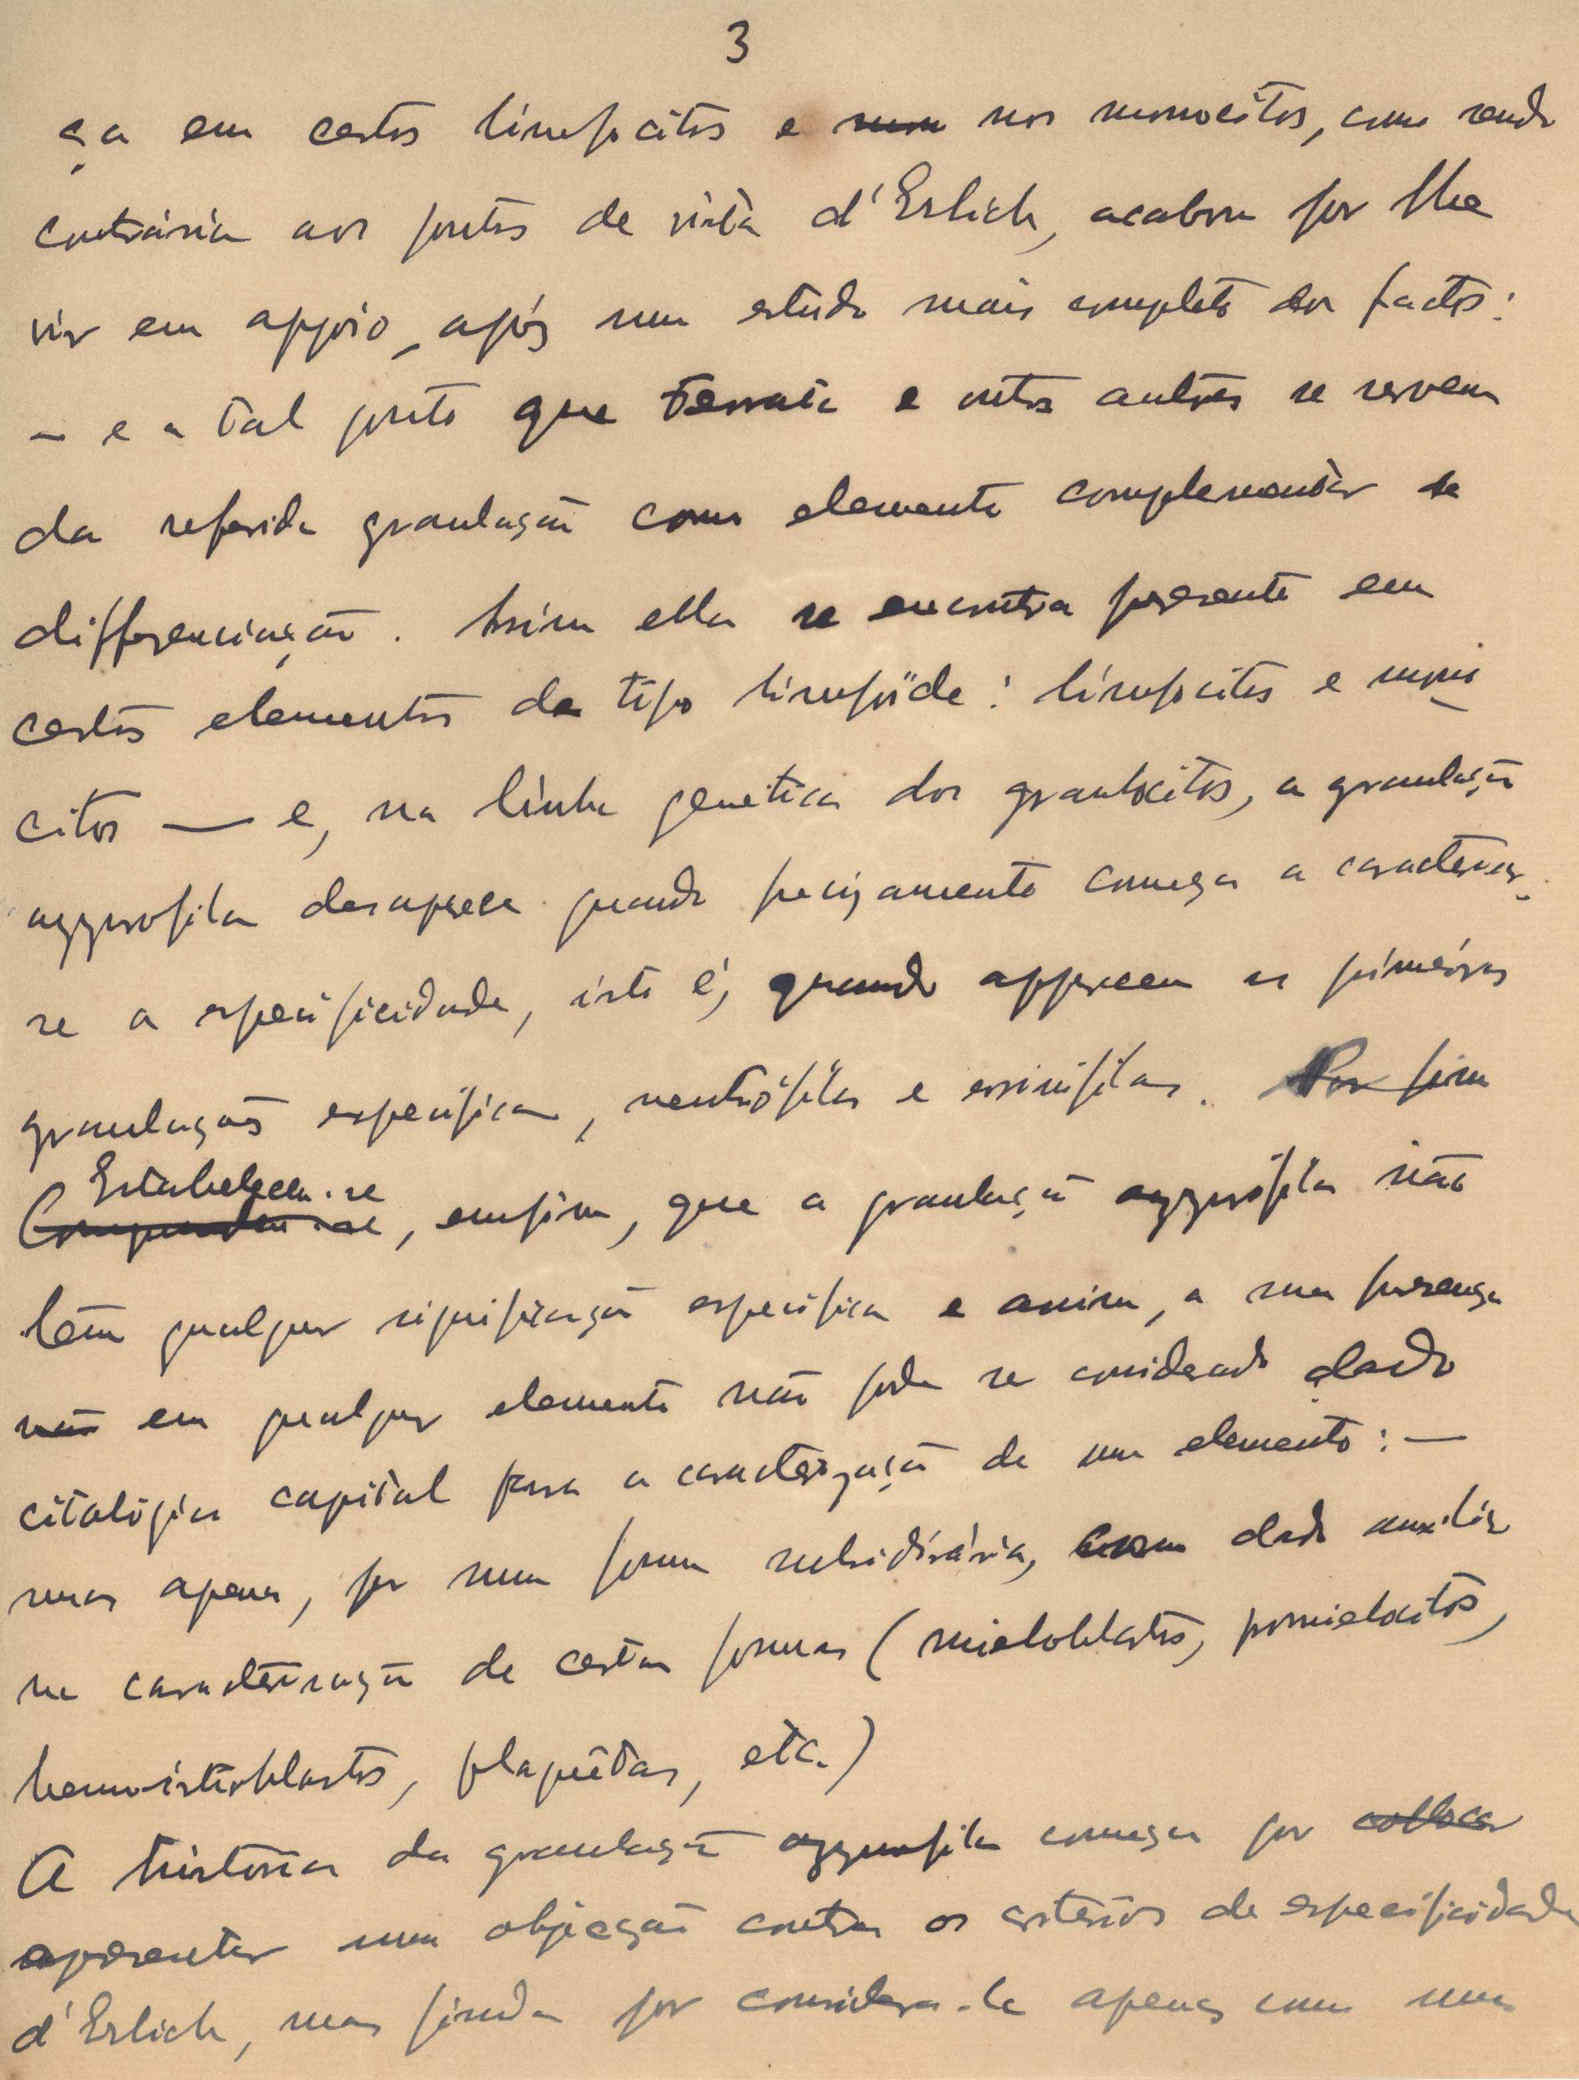 3
ça em certos linfocitos e num nos monocitos, como sendo
contrária aos pontos de vista d'Erlich, acabou por lhe
vir em appoio, após um estudo mais completo dos factos:
— e a tal ponto que Ferrata e outros autores se servem
da referida granulação como elemento complementar de
differenciação. Assim ella se encontra presente em
certos elementos de tipo linfoïde: linfocitos e mono
citos — e, na linha genetica dos granulocitos, a granulação
azzurofila desaparece quando precizamente começa a caracterizar-
se a especificidade, isto é, quando apparecem as primeiras
granulações especificas, neutrófilas e eosinifilas. Por fim
Estabelece-se
Comprendeu-se, emfim, que a granulação azzurófila não
têm qualquer significação especifica e assim, a sua presença
não em qualquer elemento não pode ser considerado dado
citológico capital para a caracterização de um elemento: —
mas apenas, por uma forma subsidirária, como dado auxiliar
na caracterisação de certas formas (mieloblastos, promielocitos,
hemoistioblastos, plaquêtas, etc.)
A história da granulação azzurofila começa por collocar
apresentar uma objecção contra os criterios de especificidade
d'Erlich, mas finda por considera-la apenas como uma